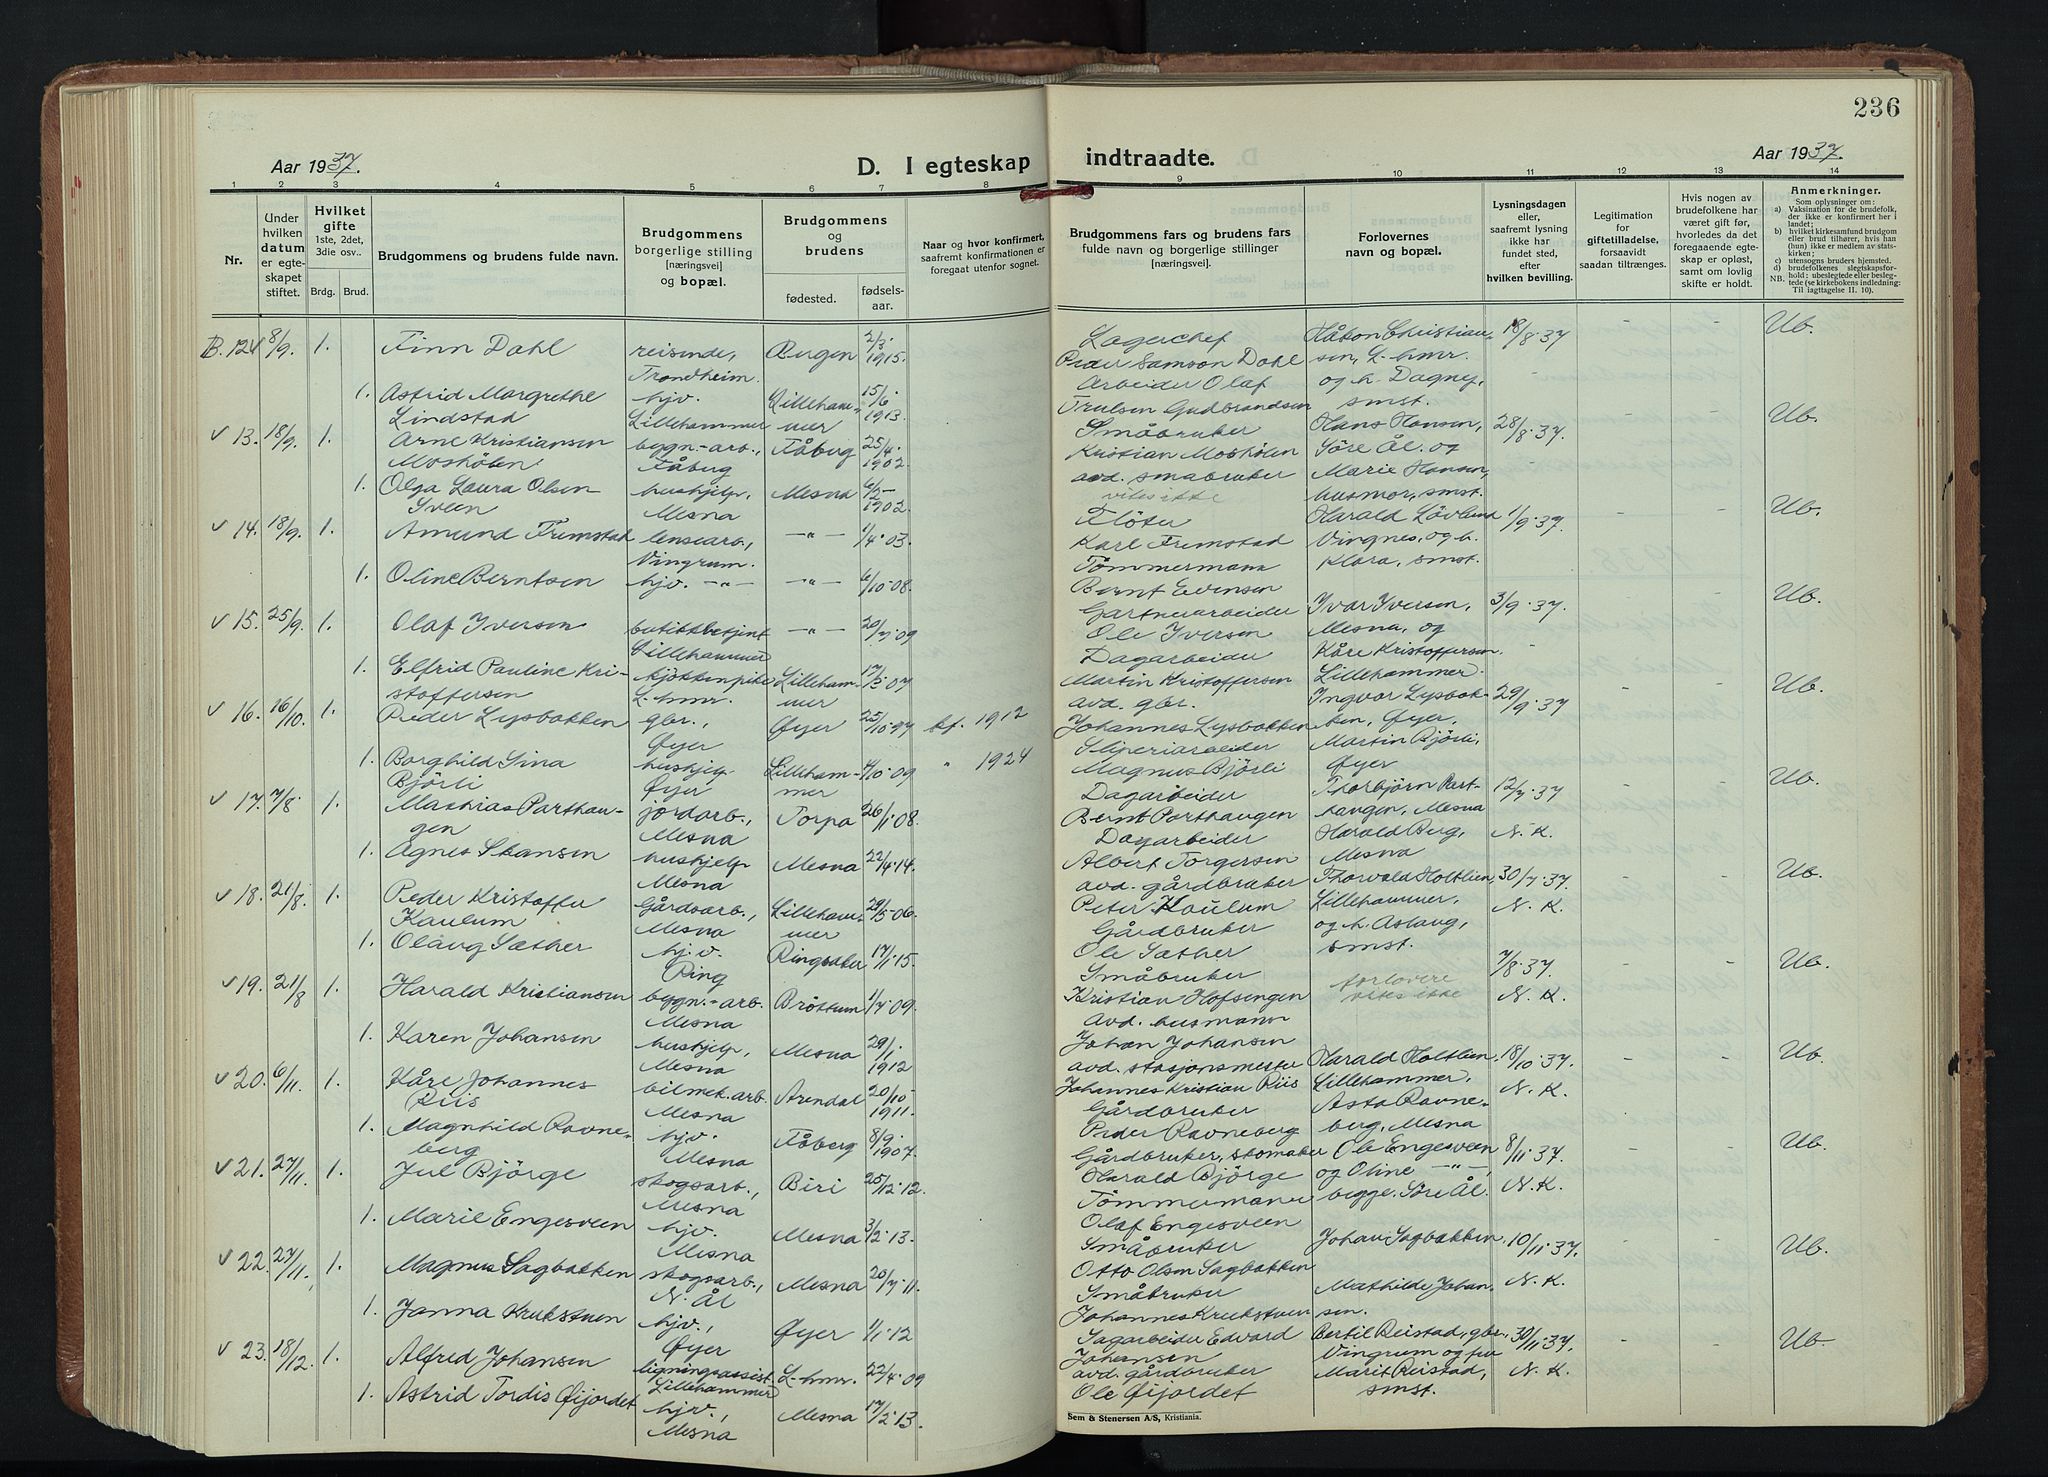 236
Aar 1937. D. I egteskap indtraadte. Aar 1937.
1 2 3 4 5 6 7 8 9 10 11 12 13 14
Nr.
Under hvilken datum er egteskapet stiftet.
Hvilket gifte 1ste, 2det, 3die osv..
Brdg. Brud.
Brudgommens og brudens fulde navn.
Brudgommens borgerlige stilling [næringsvei] og bopæl.
Brudgommens og brudens
fødested. fødselsaar.
Naar og hvor konfirmert, saafremt konfirmationen er foregaat utenfor sognet.
Brudgommens fars og brudens fars fulde navn og borgerlige stillinger [næringsvei].
Forlovernes navn og bopæl.
Lysningsdagen eller, saafremt lysning ikke har fundet sted, efter hvilken bevilling.
Legitimation for giftetilladelse, forsaavidt saadan tiltrænges.
Hvis nogen av brudefolkene har været gift før, hvorledes da det foregaaende egteskap er opløst, samt om lovlig skifte er holdt.
Anmerkninger.
Som oplysninger om:
a) Vaksination for de brudefolk, der ikke er konfirmert her i landet;
b) hvilket kirkesamfund brudgom eller brud tilhører, hvis han (hun) ikke er medlem av statskirken;
c) utensogns bruders hjemsted.
d) brudefolkenes slegtskapsforhold: ubeslegtede eller beslegtede (se kirkebokens indledning:
NB. Til iagttagelse II. 10).
B. 12 8/9. 1. Finn Dahl reisende, Trondheim. Bergen 2/3. 1915. Lagerchef Peder Samson Dahl Håkon Christiansen, L-hmr. og h. Dagny, smst. 18/8.37 - - Ub.
1. Astrid Margrethe Lindstad hjv. Lillehammer Lillehammer 15/6. 1913. Arbeider Olaf Trulsen Gudbrandsen
v 13. 18/9. 1. Arne Kristiansen Moshölen bygn.-arb., Fåberg Fåberg 25/4. 1902. Småbruker Kristian Moshölen Hans Hansen, Söre Ål. og Marie Hansen, husmor, smst. 28/8.37. - - Ub.
1. Olga Laura Olsen Sveen hushjelp, Mesna Mesna 6/2- 1902. avd. småbruker vites ikke
v 14. 18/9. 1. Amund Fremstad lensearb., Vingrum. -"- 1/4.03. Flöter Karl Fremstad Harald Lövlund Vingnes, og h. Klara, smst. 1/9.37. - - Ub.
1. Oline Berntsen hjv. -"- -"- 6/10.08. Tömmermann Bernt Evensen
v 15. 25/9. 1. Olaf Iversen butikkbetjent Lillehammer -"- 20/7.09 Gartnerarbeider Ole Iversen Ivar Iversen, Mesna, og Kåre Kristoffersen Lillehammer. 3/9.37. - - Ub.
1. Elfrid Pauline Kristoffersen kjökkenpike L-hmr. Lillehammer 17/5.07 Dagarbeider Martin Kristoffersen
v 16. 16/10. 1. Peder Lysbakken gbr., Øyer Øyer 25/10.97 kf. 1912 avd. gbr. Johannes Lysbakken Ingvar Lysbakken, Øyer, Martin Björli, Øyer 29/9.37 - - Ub.
1. Borghild Sina Björli hushjelp Øyer Lillehammer 4/10.09 " 1924 Sliperiarbeider Magnus Björli
v 17. 7/8. 1. Mathias Parthaugen jordarb., Mesna Torpa 26/1.08. Dagarbeider Bernt Parthaugen Thorbjörn Parthaugen, Mesna Harald Berg, Mesna 12/7.37 N. K. - - Ub.
1. Agnes Skansen hushjelp Mesna Mesna 22/4.14. Dagarbeider Albert Torgersen
v 18. 21/8. 1. Peder Kristoffer Kaulum Gårdsarb., Mesna Lillehammer 29/5.06. avd. gårdbruker Peter Kaulum Thorvald Holtlien, Lillehammer, og h. Aslaug, smst. 30/7.37. N. K. - - Ub.
1. Olaug Sæther hj.v. Ring Ringsaker 17/1.15. Gårdbruker Ole Sæther
v 19. 21/8 1. Harald Kristiansen bygn.-arb. Mesna Bröttum 1/7.09. Småbruker Kristian Hofsengen forlovere vites ikke 7/8.37. N. K. - - Ub.
1. Karen Johansen hushjelp, Mesna Mesna 29/1. 1912 Avd. husmann Johan Johansen
v 20. 6/11. 1. Kåre Johannes Riis bilmek.arb. Mesna Arendal 20/10- 1911. avd. stasjonsmester Johannes Kristian Riis Harald Holtlien, Lillehammer, Asta Ravneberg, Mesna 18/10.37. N. K. - - Ub.
1. Magnhild Ravneberg hjv. Mesna Fåberg 8/9. 1907. Gårdbruker Peder Ravneberg
v 21. 27/11. 1. Jul Björge skogsarb., Mesna Biri 25/12.12. Gårdbruker, skomaker Harald Björge Ole Engesveen og Oline -"-, begge Söre Ål. 8/11.37. N. K. - - Ub.
1. Marie Engesveen hjv. Mesna Mesna 3/2.13. Tömmermann Olaf Engesveen
v 22. 27/11. 1. Magnus Sagbakken skogsarb., N. Ål Mesna 20/7.11. Småbruker Otto Olsen Sagbakken Johan Sagbakken, Mathilde Johansen. 10/11.37. N. K. - - Ub.
1. Janna Krukstuen hjv., Øyer Øyer 1/1.12 Småbruker Johannes Krukstuen
v 23. 18/12. 1. Alfred Johansen ligningsassist. Lillehammer L-hmr. 22/4.09 Sagarbeider Edvard Johansen Bertil Reistad, gbr., Vingrum og fru Marit Reistad, smst. 30/11.37. N. K. - - Ub.
1. Astrid Tordis Øijordet hjv., Mesna Mesna 17/2.13. avd. gårdbruker Ole Øijordet
Sem & Stenersen A/S, Kristiania.